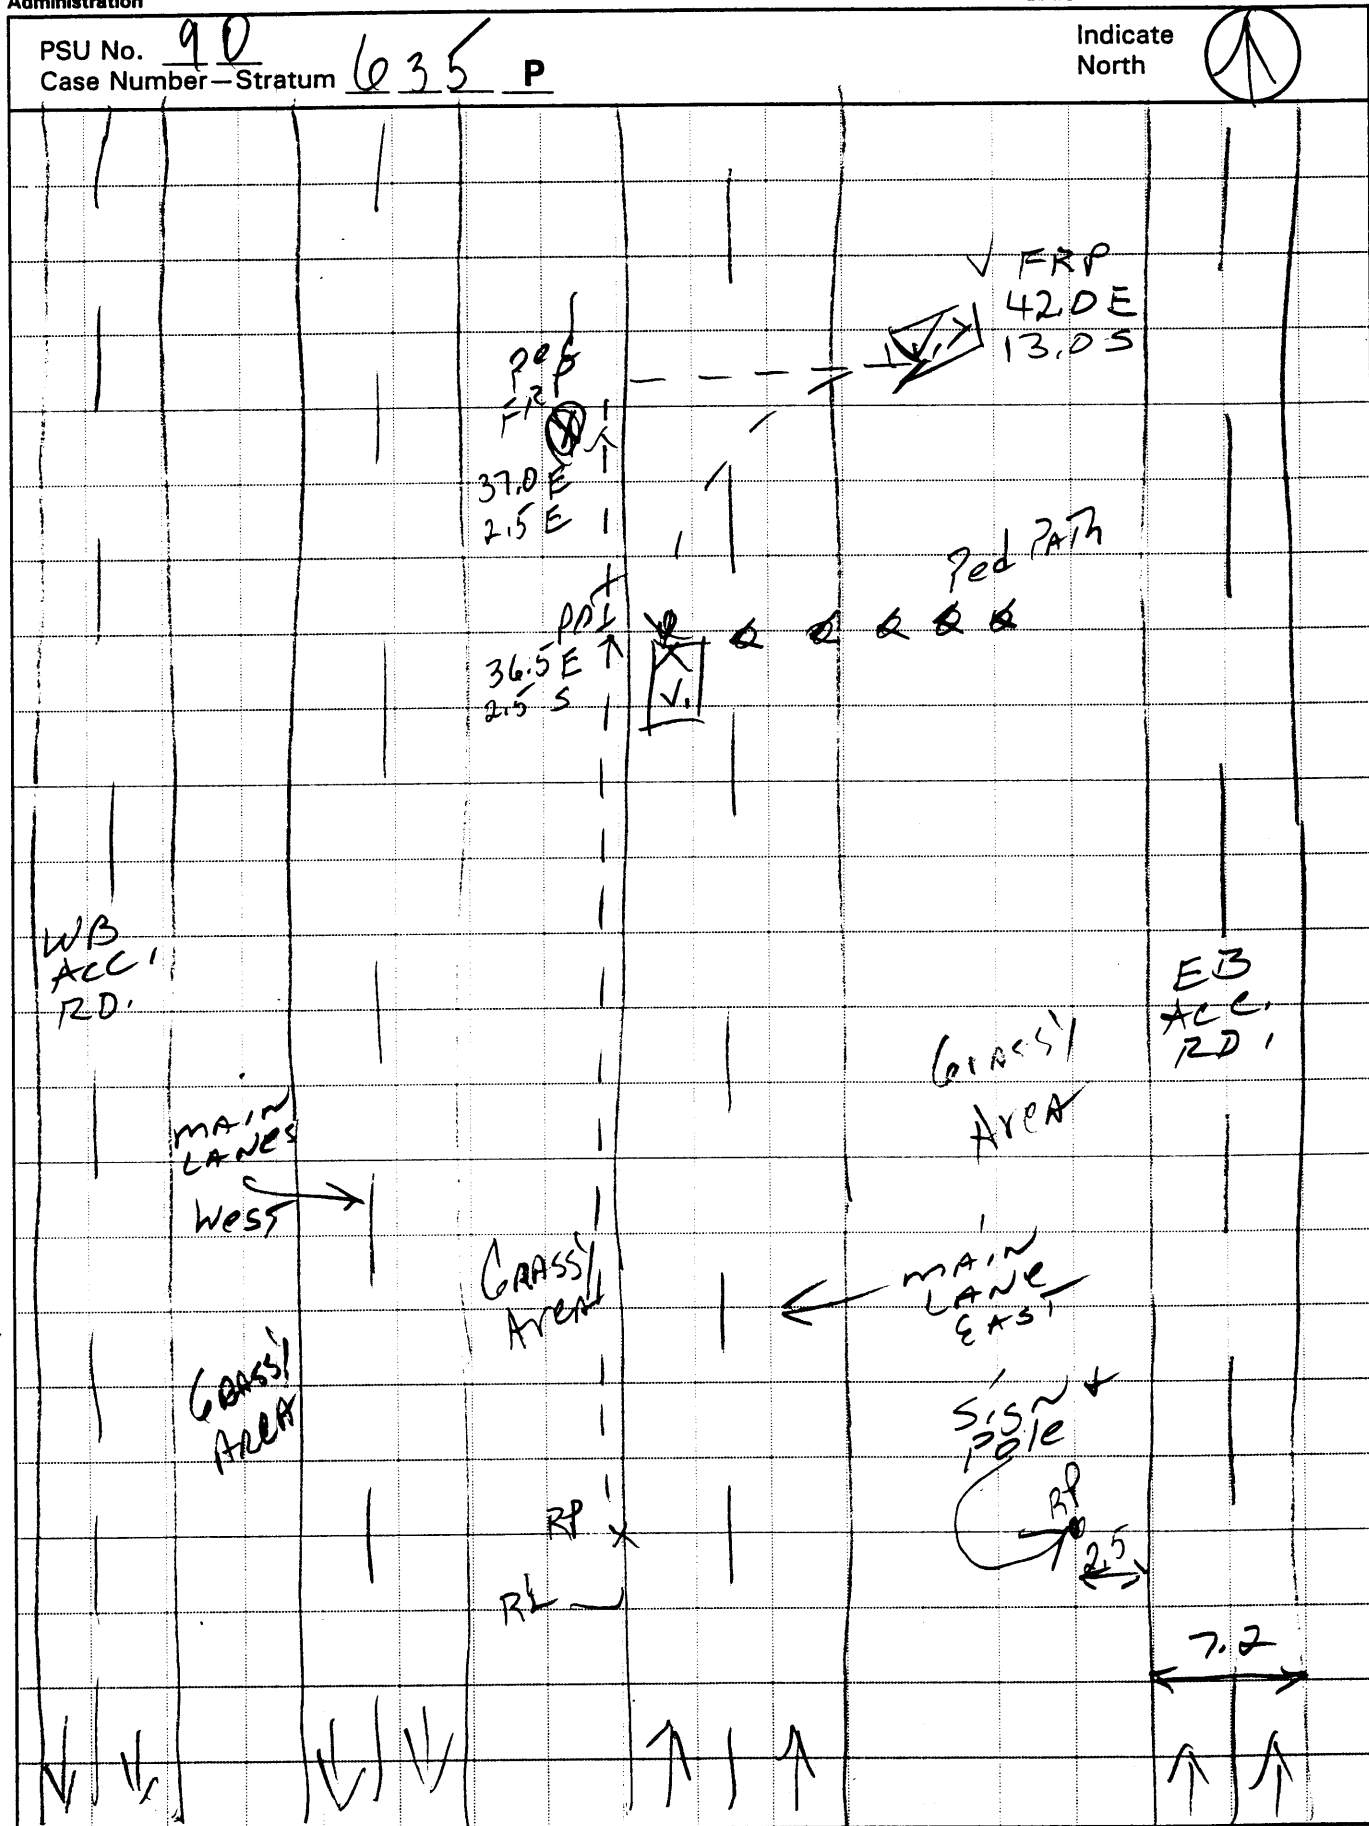 Administration
PSU No. 90
Case Number—Stratum 635 P
Indicate
North
FRP
42.0 E
13.0 S
Ped
FRP
37.0 E
2.5 E
Ped PATh
POI
36.5 E
2.5 S
V.
WB
ACC.
RD.
EB
ACC.
RD.
GrASSY
AreA
MAIN
LANES
West
GRASSY
AreA
MAIN
LANE
EAST
GRASSY
AReA
Sign
pole
RP
RP
2.5
RL
7.2